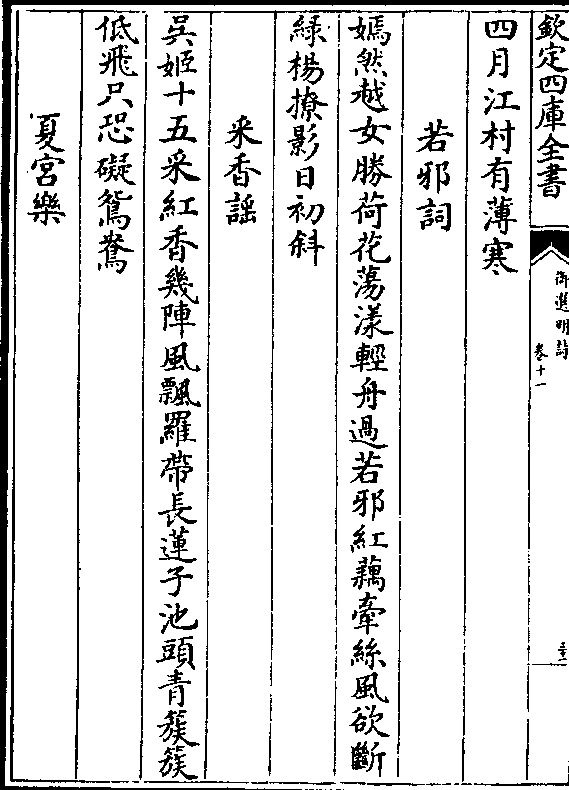 欽定四庫全書
御選明詩
卷十一
四月江村有薄寒
若邪詞
嫣然越女勝荷花蕩漾輕舟過若邪紅藕牽絲風欲斷
綠楊撩影日初斜
采香謡
吳姬十五采紅香幾陣風飄羅帶長蓮子池頭青簇簇
低飛只恐礙鴛鴦
夏宮樂